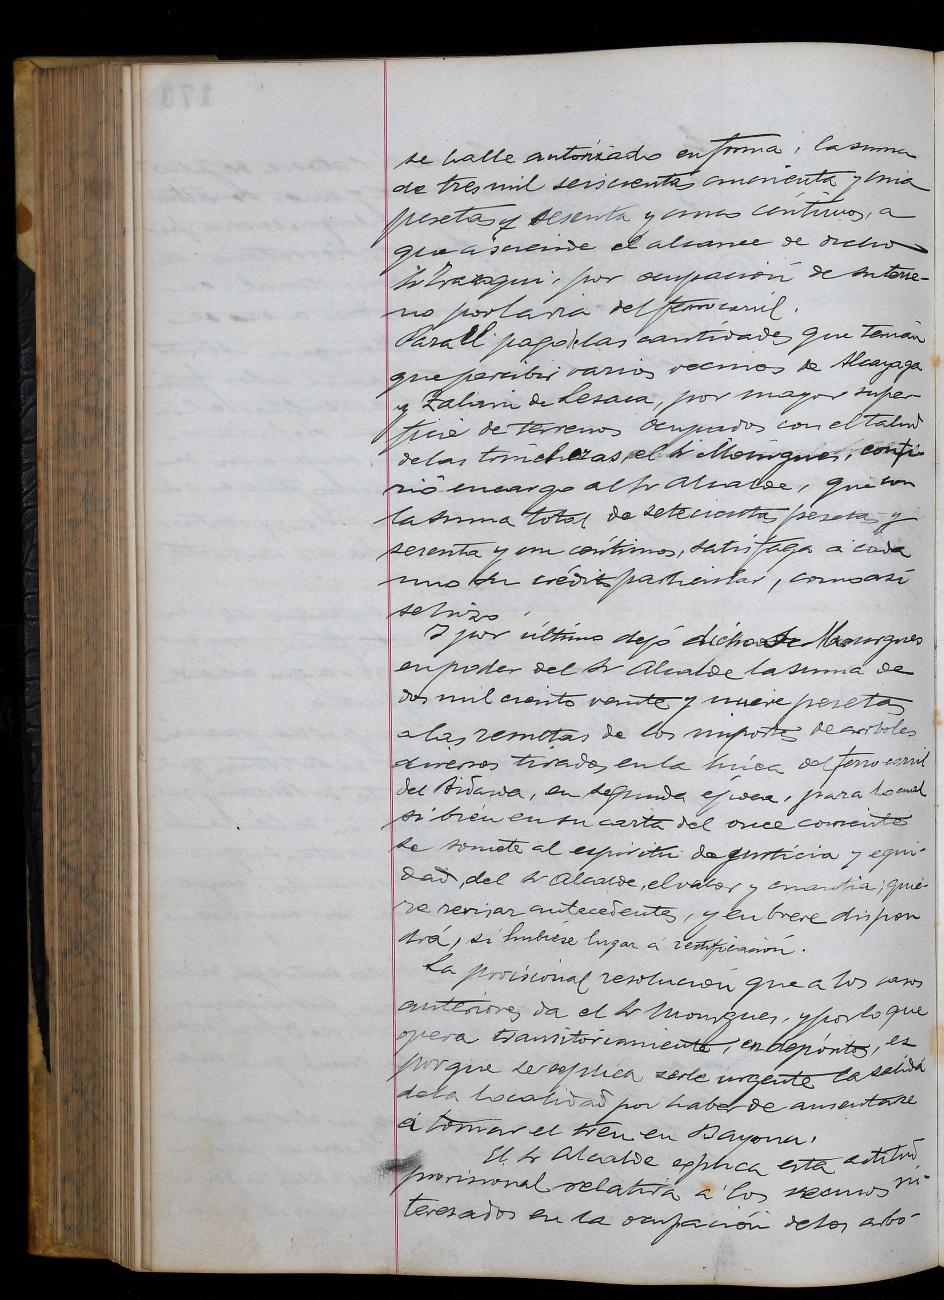 se halle autorizado en forma, la suma
de tres mil seiscientas cuarenta y una
pesetas y sesenta y unos céntimos, a
que asciende el alcance de dicho
Sr por ocupación de su terre-
no por la via del ferrocarril.
Para el pago de las cantidades que tenían
que percibir varios vecinos de Alcayaga
y Zalain de Lesaca, por mayor super-
ficie de terrenos ocupados con el talud
de las trincheras, el Sr Mourgues, confi-
rió encargo al Sr Alcalde, que con
la suma total de setecientas pesetas y
sesenta y un céntimos, satisfaga a cada
uno su crédito particular, como así
se hizo.
Y por último dejó dicho Sr Mourgues
en poder del Sr Alcalde la suma de
dos mil ciento veinte y nueve pesetas
a las resultas de los importes de arboles
diversos tirados en la linea del ferrocarril
del Bidasoa, en segunda época, para lo cual
si bien en su carta del once corriente
se somete al espiritu de justicia y equi-
dad, del Sr Alcalde, el valor y cuantia; quie-
re revisar antecedentes, y en breve dispon
drá, si hubiese lugar a rectificación.
La provisional resolución que a los casos
anteriores da el Sr Mourgues, y por lo que
opera transitoriamente, en depósitos, es
porque se explica serle urgente la salida
de la localidad por haber de ausentarse
á tomar el tren en Bayona.
El Sr Alcalde explica esta actitud
provisional relativa a los vecinos in-
teresados en la ocupación de los arbo-